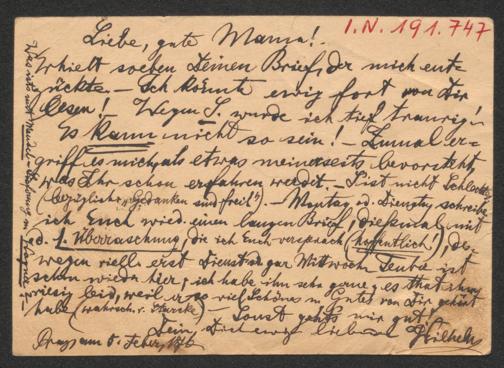 I.N. 191.747
Liebe, gute Mama!
Erhielt soeben Deinen Brief, der mich ent-
rückte. – Ich könnte ewig fort von Dir
lesen! – Wegen S. wurde ich tief traurig!
Es kann nicht so sein! – Zumal er-
griff es mich, als etwas meinerseits bevorsteht,
was Ihr schon erfahren werdet. – S. ist nicht schlecht
(bezüglich „Gedanken sind frei"). – Montag od. Dienstg. schreibe
ich Euch wied. einen langen Brief, diesmal mit
d. 1. Überraschung, die ich Euch versprach (hoffentlich!) des-
wegen vielleicht erst Dienstag gar Mittwoch. Teube ist
schon wieder hier; ich habe ihn sehr gerne; es that ihm
riesig leid, weil er so viel Schönes u. Gutes von Dir gehört
habe (wahrsch. v.
Sonst geht's mir gut!
Dein, Dich ewig liebender
Prag am 5.
Was ist's mit